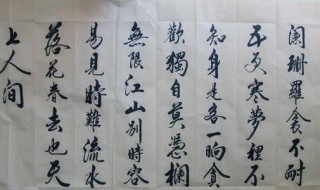 闌珊羅衾不耐
五更寒夢裡不
知身是客一晌貪
歡獨自莫憑欄
無限江山別時容
易見時難流水
落花春去也天
上人间